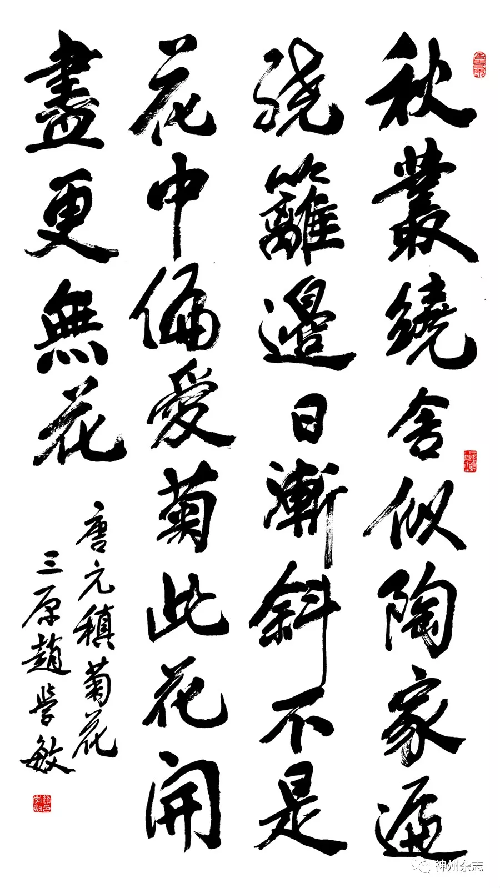 秋叢繞舍似陶家遍
繞籬邊日漸斜不是
花中偏愛菊此花開
盡更無花
唐元稹菊花
三原趙学敏
神州杂志